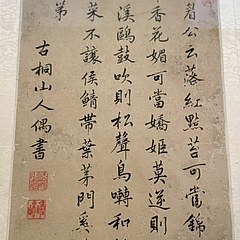 眉公云落紅點苔可當錦
香花媚可當嬌姬莫逆則
溪鷗鼓吹則松聲鳥囀和
菜不讓侯鯖帶葉茅門奚
第
古桐山人偶書